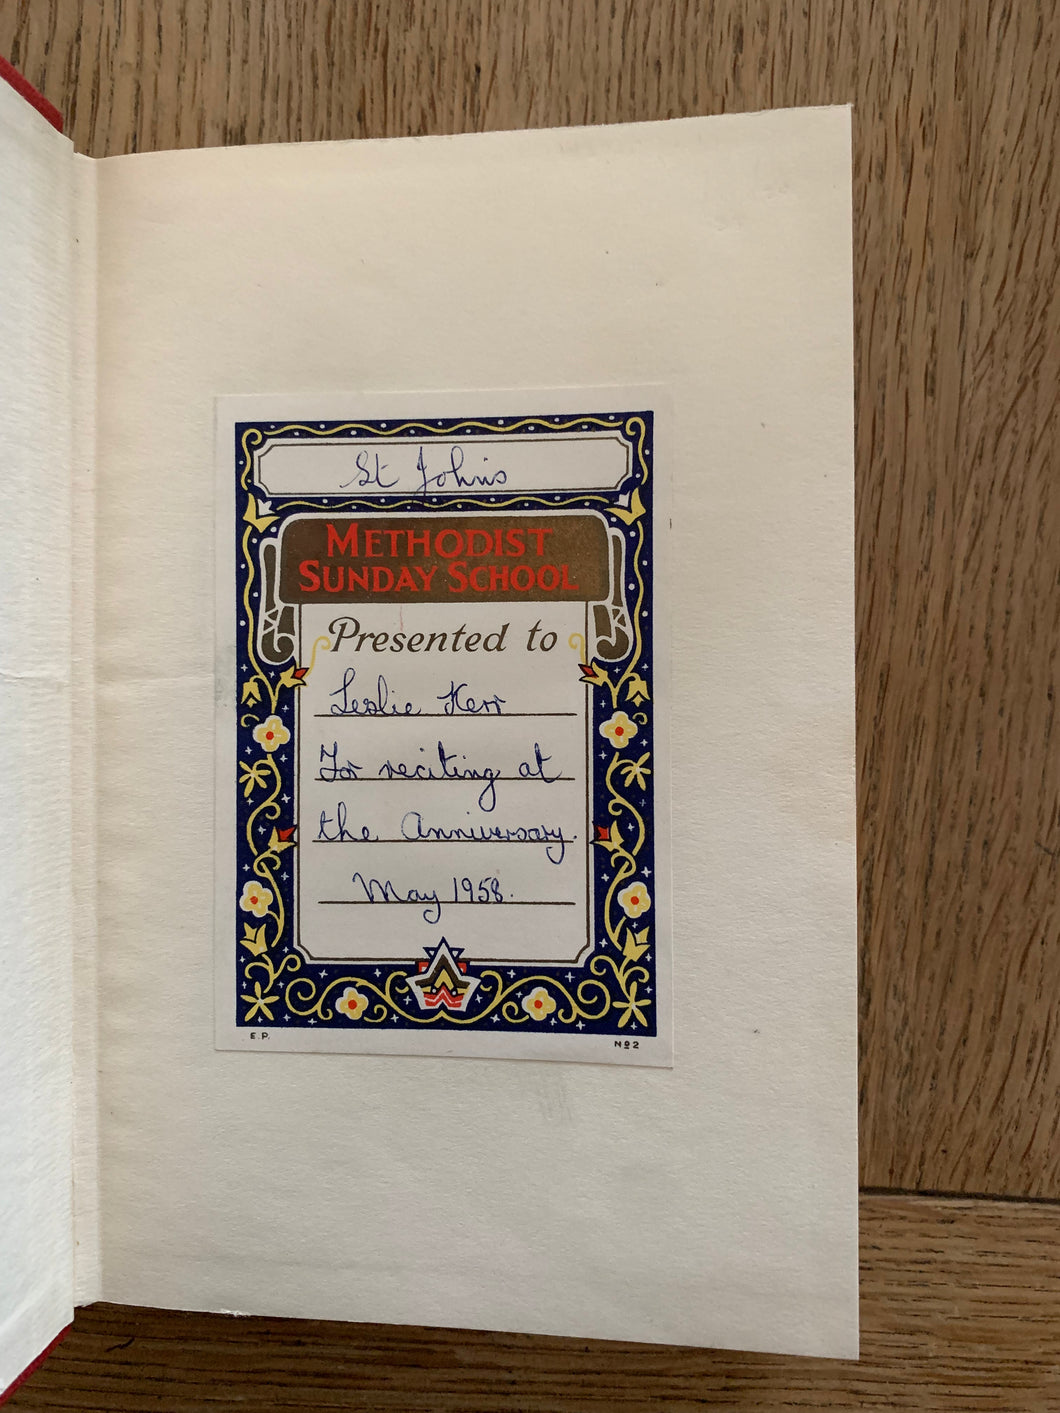 St Johns
METHODIST
SUNDAY SCHOOL
Presented to
Leslie Kerr
For reciting at
the Anniversary.
May 1958.
E.P.
No 2